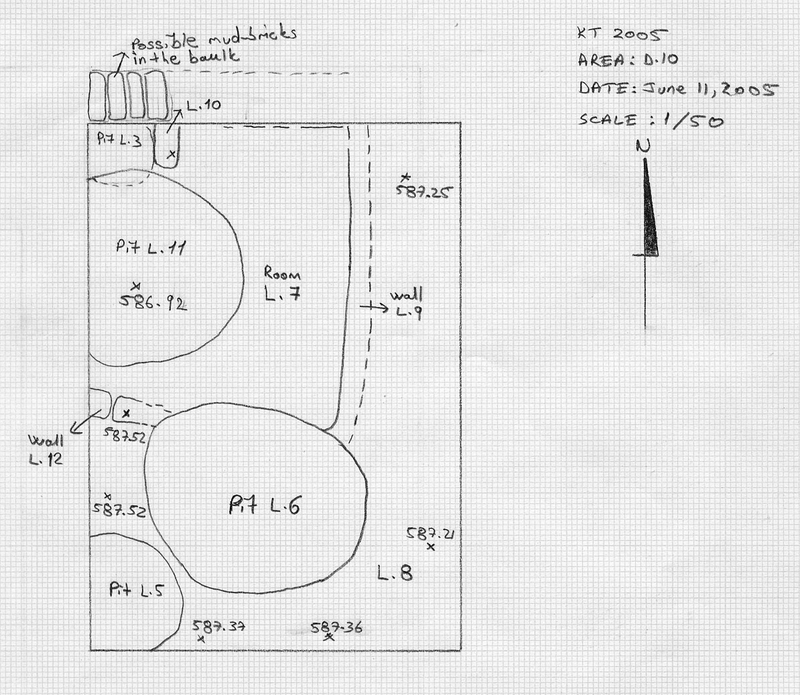 Possible mud-bricks
in the baulk
L.10
Pit L.3
Pit L.11
586.92
Room
L.7
587.25
wall
L.9
587.52
Wall
L.12
587.52
Pit L.6
587.21
L.8
Pit L.5
587.37
587.36
KT 2005
AREA: D.10
DATE: June 11, 2005
SCALE : 1/50
N